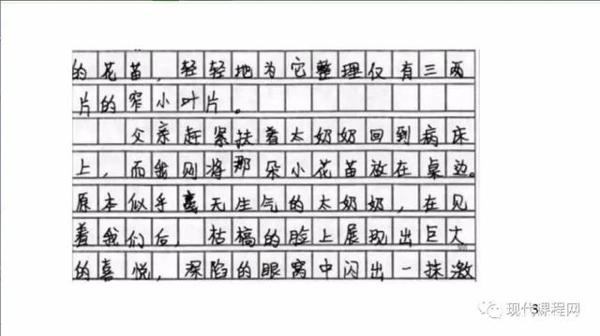 的花苗，轻轻地为它整理仅有三两
片的窄小叶片。
父亲赶紧扶着太奶奶回到病床
上，而我则将那朵小花苗放在桌边。
原本似乎毫无生气的太奶奶，在见
着我们后，枯槁的脸上展现出巨大
的喜悦，深陷的眼窝中闪出一抹激
现代课程网